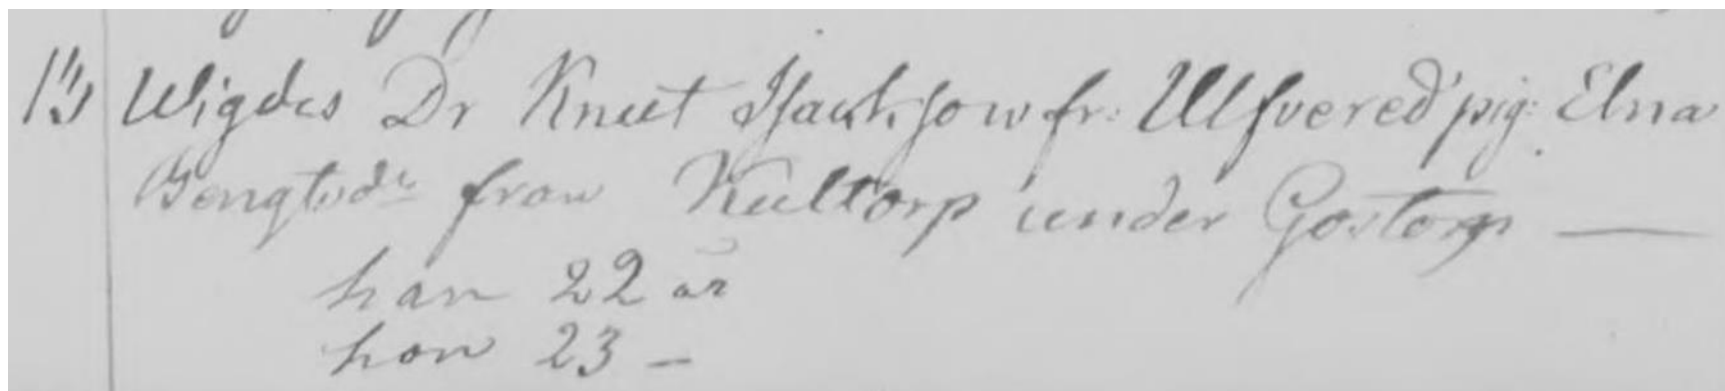 13 Wigdes Dr Knut Isacksson fr: Ulfvered pig: Elna
Bengtsdr från Kultorp under Gostorp —
han 22 år
hon 23 —